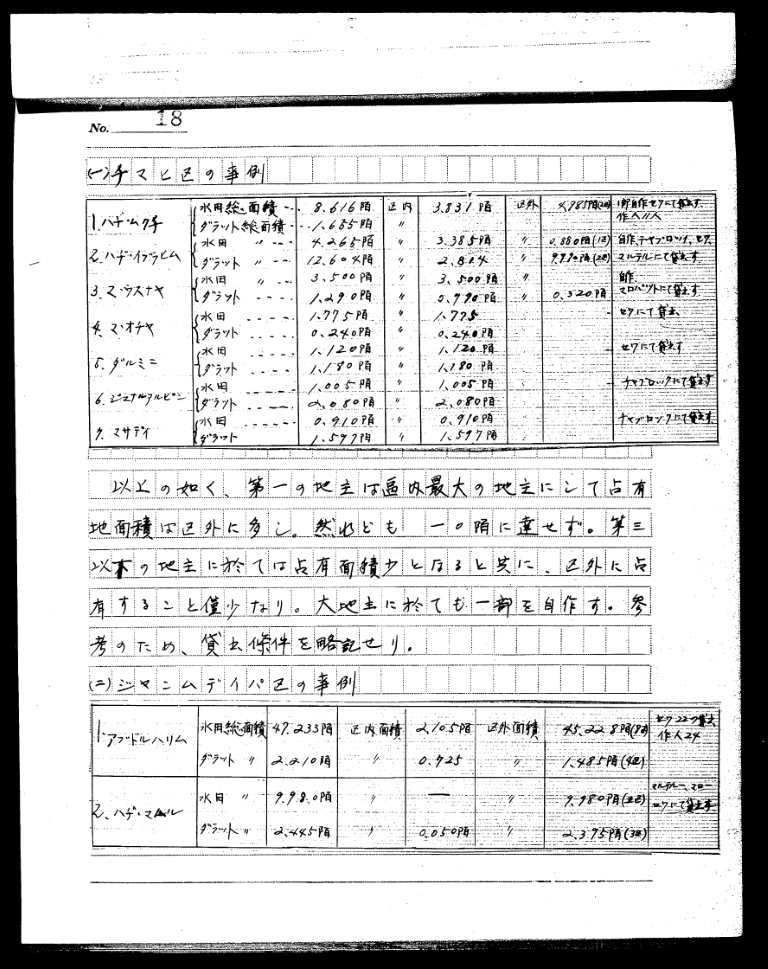 No. 18
(一)チマヒ区の事例
1.ハヂ・ムクチ 水田総面積 8.616陌 区内 3.831陌 区外 4.785陌 1部自作セワにて貸出す、作人11人
ダラット総面積 1.655陌 〃
2.ハヂ・イブラヒム 水田 〃 4.265陌 3.385陌 〃 0.880陌(1区) 自作、チャブロング、セワ、
ダラット 〃 12.604陌 〃 2.804 〃 9.790陌(2区) マルテルにて貸出す
3.マ・ウスナヤ 水田 3.500陌 〃 3.500陌 〃 自作
ダラット 1.290陌 〃 0.990陌 〃 0.320陌 マロパットにて貸出す
4.マ・オチヤ 水田 1.775陌 〃 1.775 セワにて貸出
ダラット 0.240陌 〃 0.240陌
5.ダルミニ 水田 1.120陌 〃 1.120陌 セワにて貸出す
ダラット 1.180陌 〃 1.180陌
6. 水田 1.005陌 〃 1.005陌 チャブロックにて貸出す
ダラット 2.080陌 〃 2.080陌
7.マサデイ 水田 0.910陌 〃 0.910陌 チャブロンクにて貸出す
ダラット 1.597陌 〃 1.597陌
以上の如く、第一の地主は区内最大の地主にして占有
地面積は区外に多し。然れども一〇陌に達せず。第三
以下の地主に於ては占有面積少となると共に、区外に占
有すること僅少なり。大地主に於ても一部を自作す。参
考のため、貸出條件を略記せり。
(二)ジャンムデイパ区の事例
1.アブドルハリム 水田総面積 47.233陌 区内面積 2.105陌 区外面積 45.228陌(8区) セワ22ツ貸出 作人24
ダラット 〃 2.210陌 〃 0.725 〃 1.485陌(4区)
2.ハヂ・マ 水田 〃 9.980陌 〃 ― 〃 9.980陌(2区) マルテルー、マロー セワにて貸出す
ダラット 〃 2.445陌 〃 0.050陌 〃 2.395陌(3区)